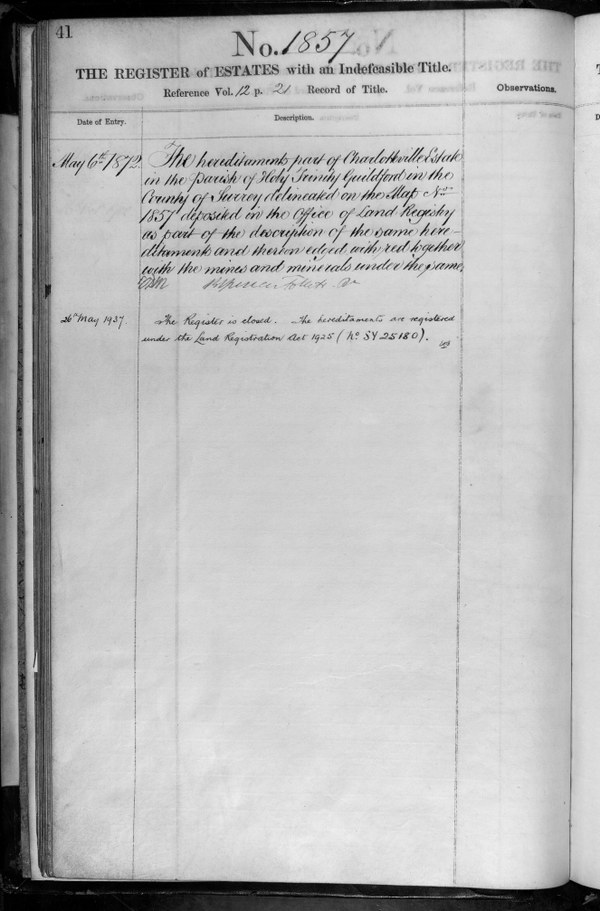 41
No. 1857
THE REGISTER of ESTATES with an Indefeasible Title.
Reference Vol. 12 p. 21 Record of Title.
Observations.
Date of Entry.
Description.
May 6th 1872.
The hereditaments part of Charlotteville Estate
in the Parish of Holy Trinity Guildford in the
County of Surrey delineated on the Map No.
1857 deposited in the Office of Land Registry
as part of the description of the same here-
ditaments and thereon edged with red together
with the mines and minerals under the same.
26th May 1937.
The Register is closed. The hereditaments are registered
under the Land Registration Act 1925 (No. SY 25180).